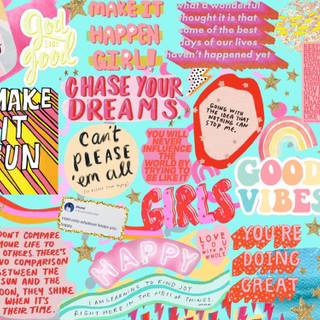 god is good
MAKE IT
HAPPEN
GIRL!
what a wonderful
thought it is that
some of the best
days of our lives
haven't happened yet
MAKE
IT
FUN
CHASE YOUR
DREAMS
GOING WITH
THE IDEA THAT
NOTHING CAN
STOP ME.
can't
PLEASE
'em all
YOU WILL
NEVER
INFLUENCE
THE WORLD BY
TRYING TO
BE LIKE IT
GIRLS
GOOD
VIBES
DON'T COMPARE
YOUR LIFE TO
OTHERS. THERE'S
NO COMPARISON
BETWEEN THE
SUN AND THE
MOON, THEY SHINE
WHEN IT'S
THEIR TIME.
HAPPY
I AM LEARNING TO FIND JOY
RIGHT HERE IN THE MESS OF THINGS.
LOVE
YOU
WHOLE
YOU'RE
DOING
GREAT